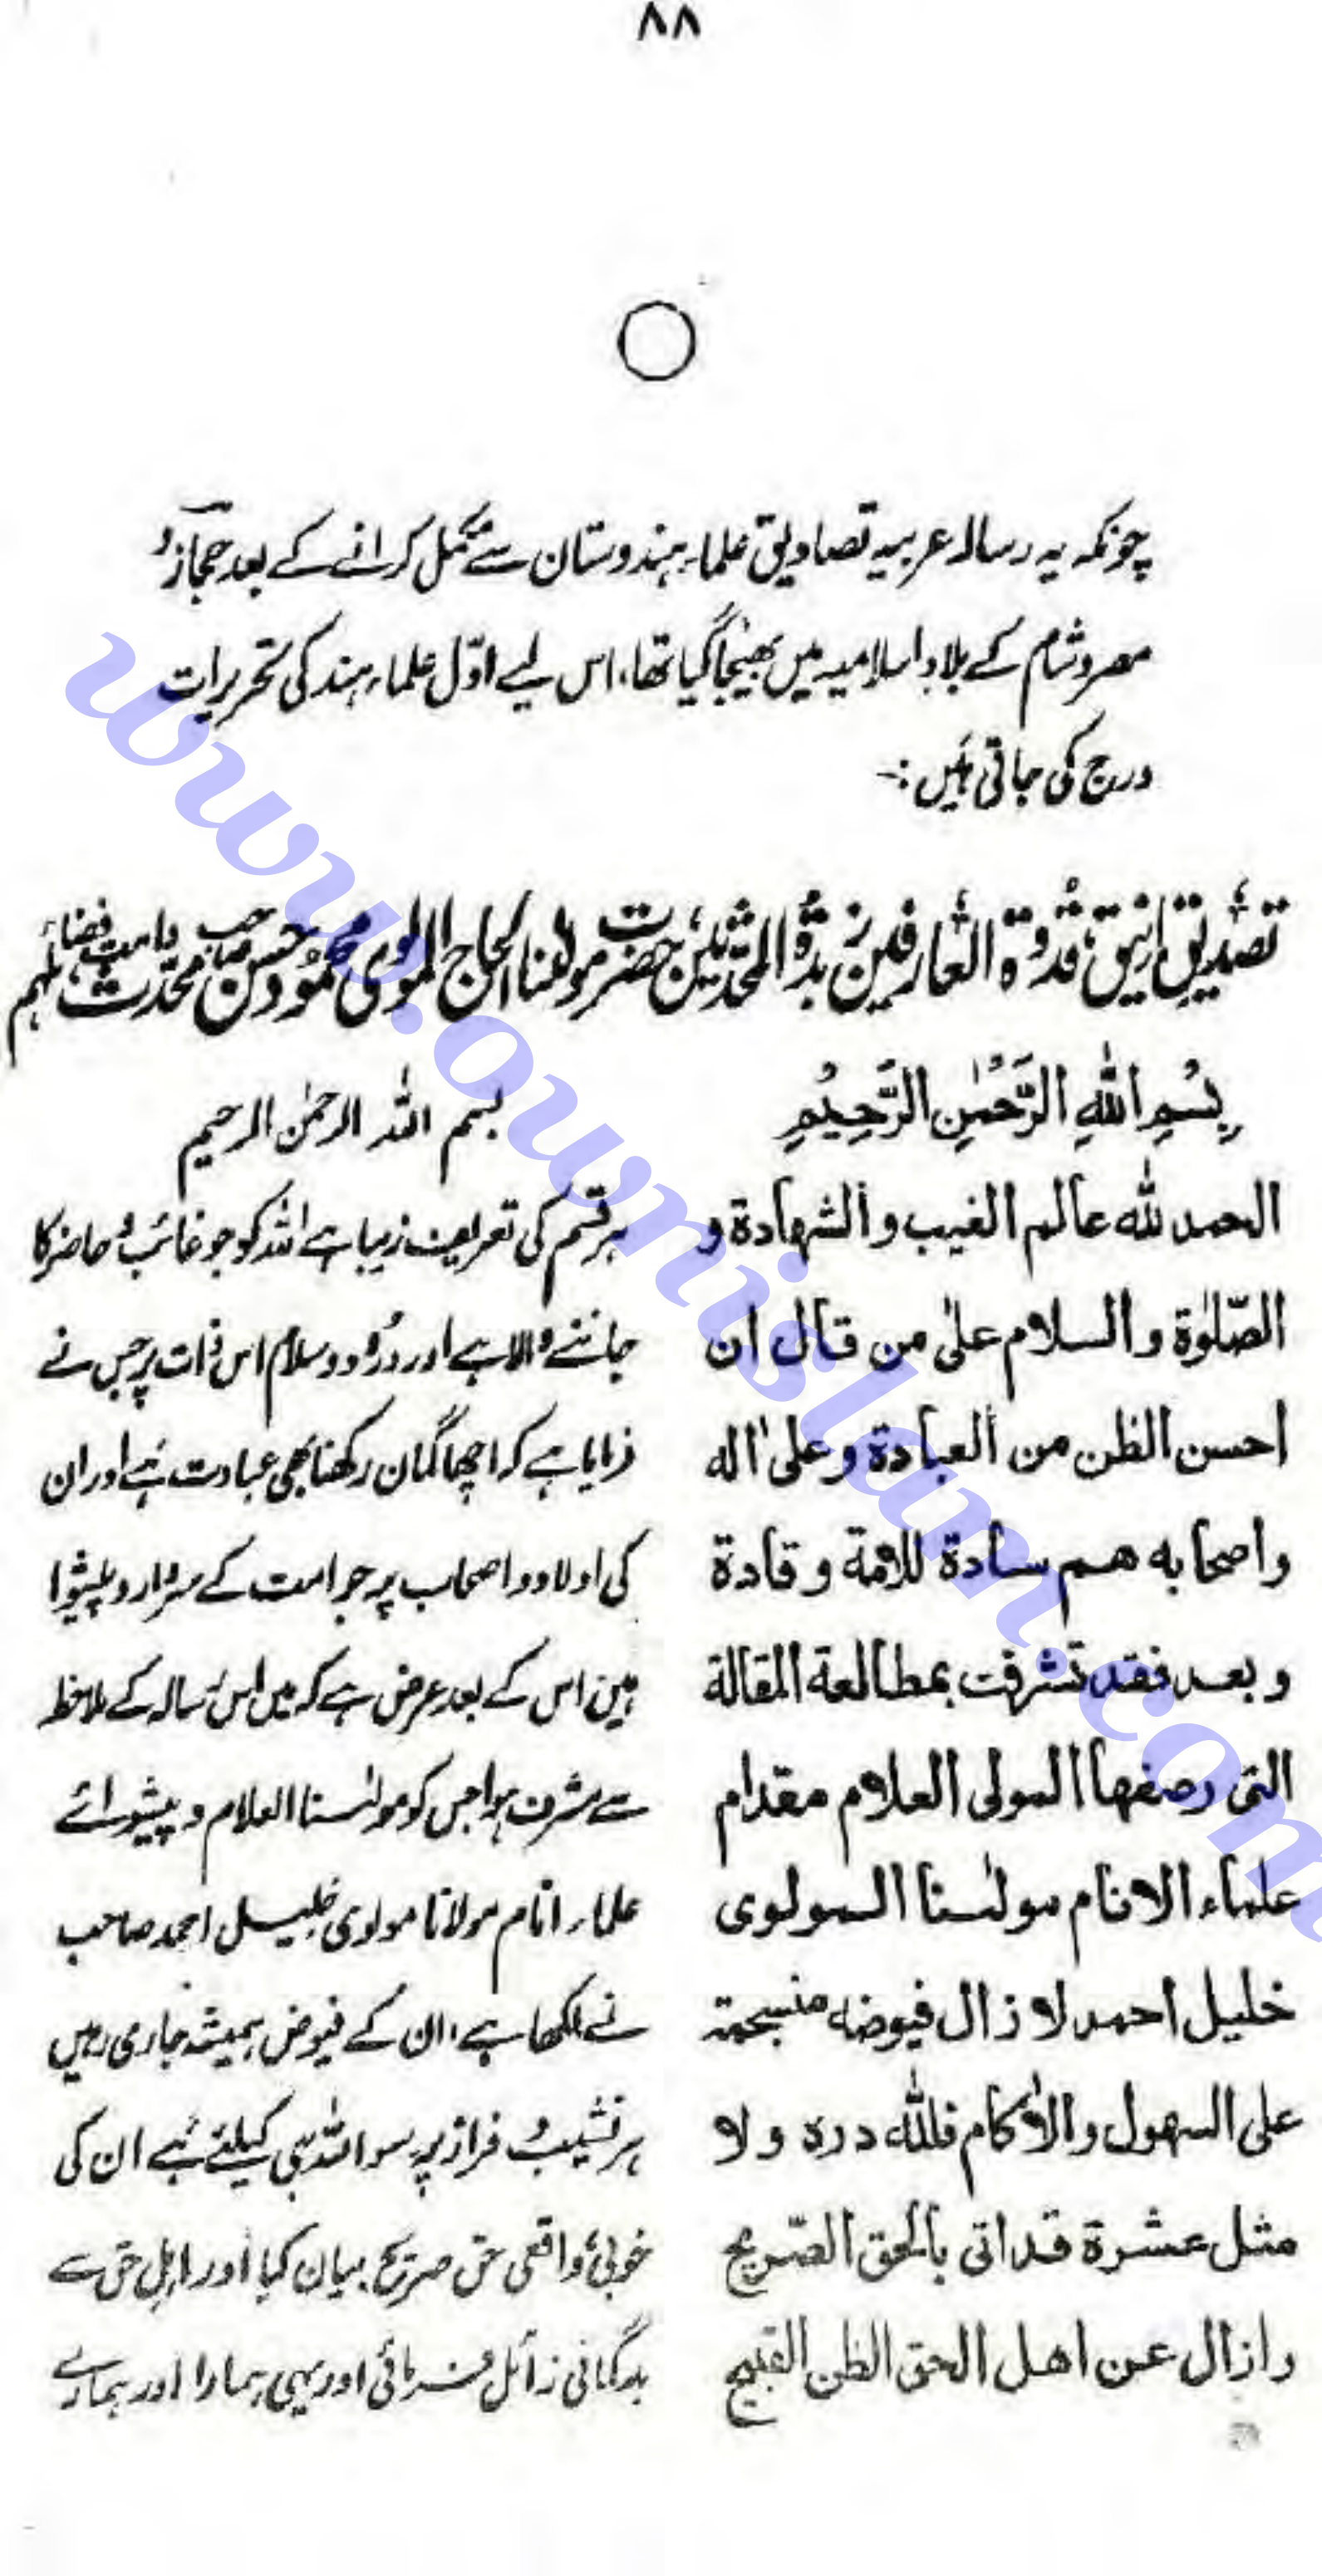 ۸۸
چونکہ یہ رسالہ عربیہ تصادیق علماء ہندوستان سے مکمل کرانے کے بعد حجاز و
مصر و شام کے بلادِ اسلامیہ میں بھیجا گیا تھا، اس لیے اوّل علماء ہند کی تحریرات
درج کی جاتی ہیں :-
تصدیق انیق قدوۃ العارفین زبدۃ المحدثین حضرت مولٰنا الحاج المولوی محمود حسن صاحب محدث دامت فضائلہم
بِسْمِ اللّٰهِ الرَّحْمٰنِ الرَّحِيْمِ
الحمد لله عالم الغيب والشهادة و
الصّلوٰة والسلام علىٰ من قال ان
احسن الظن من العبادة وعلىٰ اله
واصحابه هم سادة للامة وقادة
وبعد فقد تشرفت بمطالعة المقالة
التى رصفها المولى العلام مقدام
علماء الانام مولٰنا المولوى
خليل احمد لا زال فيوضه منسجمة
على السهول والاٰكام فللّٰه دره ولا
مثل عشرة قد اتى بالحق الصّريح
وازال عن اهل الحق الظن القبيح
بسم اللہ الرحمٰن الرحیم
ہر قسم کی تعریف زیبا ہے اللہ کو جو غائب و حاضر کا
جاننے والا ہے اور درود و سلام اس ذات پر جس نے
فرمایا ہے کہ اچھا گمان رکھنا بھی عبادت ہے اور ان
کی اولاد و اصحاب پر جو امت کے سردار و پیشوا
ہیں اس کے بعد عرض ہے کہ میں اس رسالہ کے ملاحظہ
سے مشرف ہوا جس کو مولٰنا العلام و پیشوائے
علماء انام مولانا مولوی خلیل احمد صاحب
نے لکھا ہے، ان کے فیوض ہمیشہ جاری رہیں
ہر نشیب و فراز پر سو اللہ ہی کیلئے ہے ان کی
خوبی واقعی حق صریح بیان کیا اور اہل حق سے
بدگمانی زائل فرمائی اور یہی ہمارا اور ہمارے
www.ownislam.com